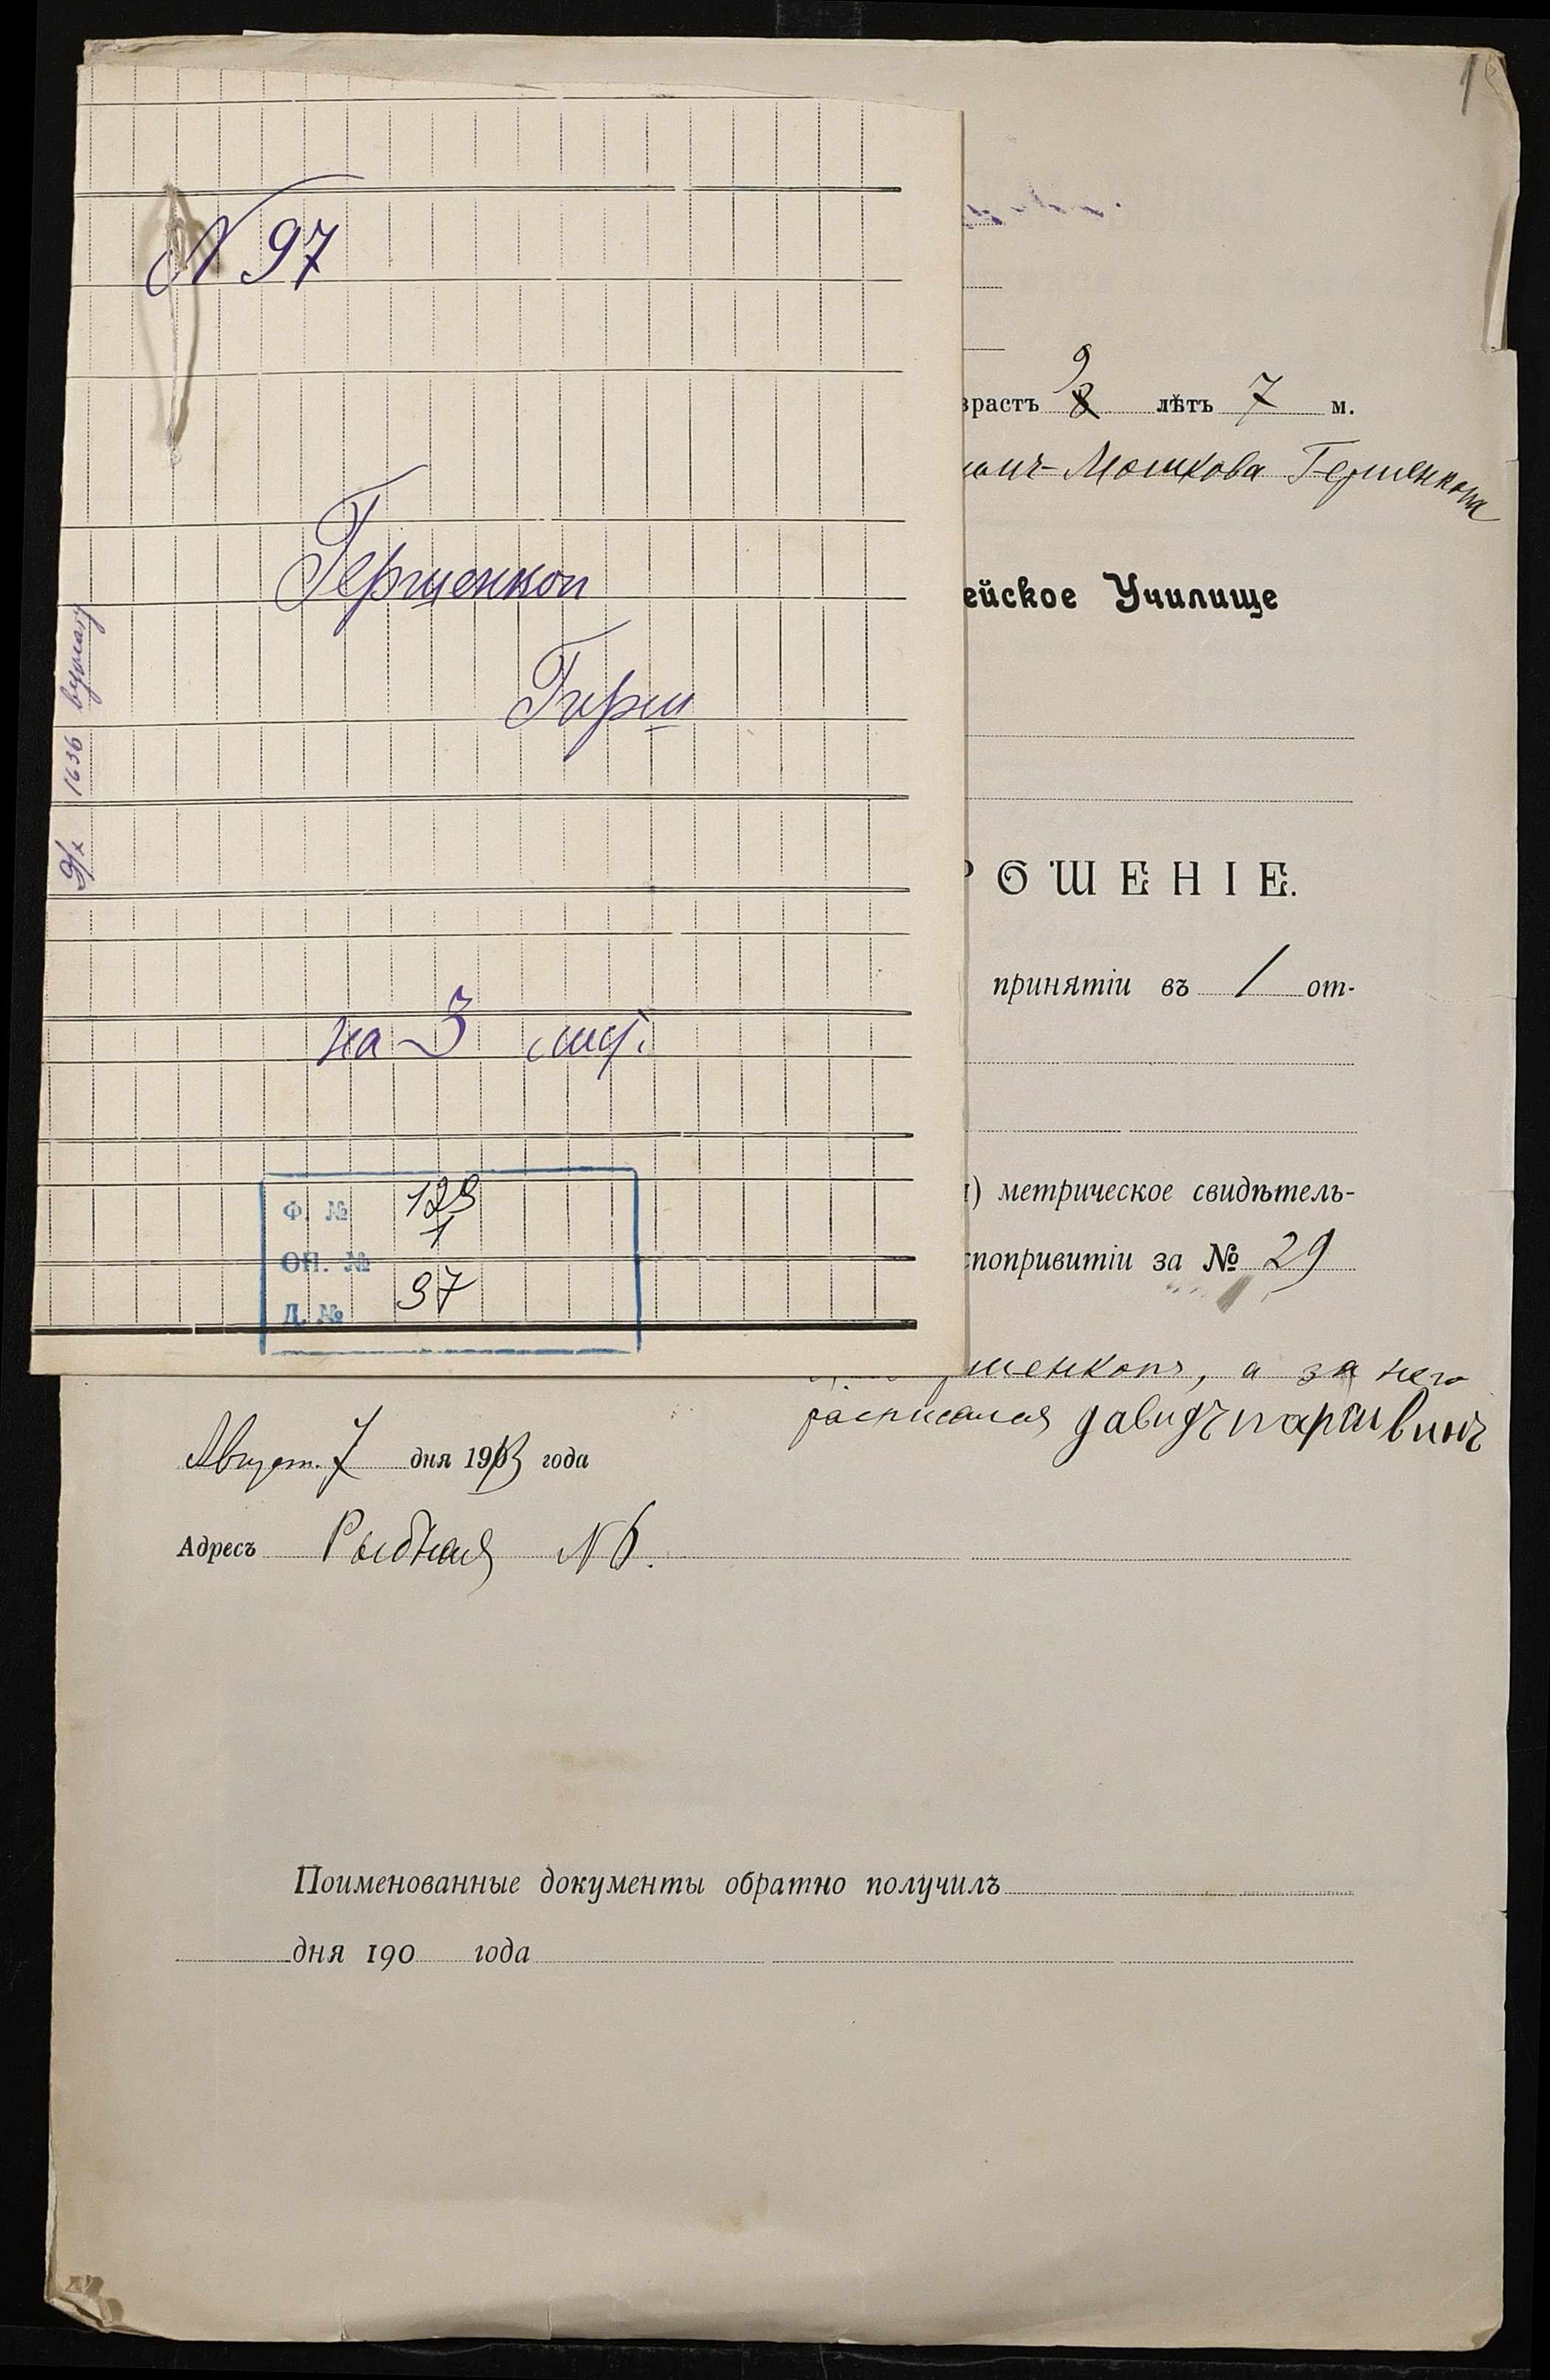 N 97
Гершенкоп
Гирш
на 3 лист.
Ф. № 129
ОП. № 1
Д. № 97
1636
1
зрастъ 9 8 лѣтъ 7 м.
Мошкова Гершенкопа
ейское Училище
ОШЕНІЕ.
принятіи въ 1 от-
) метрическое свидѣтель-
спопривитіи за № 29
шенкопъ, а за него
расписался Давидъ
Август. 7 дня 1913 года
Адресъ Рыбная N 6.
Поименованные документы обратно получилъ
дня 190 года